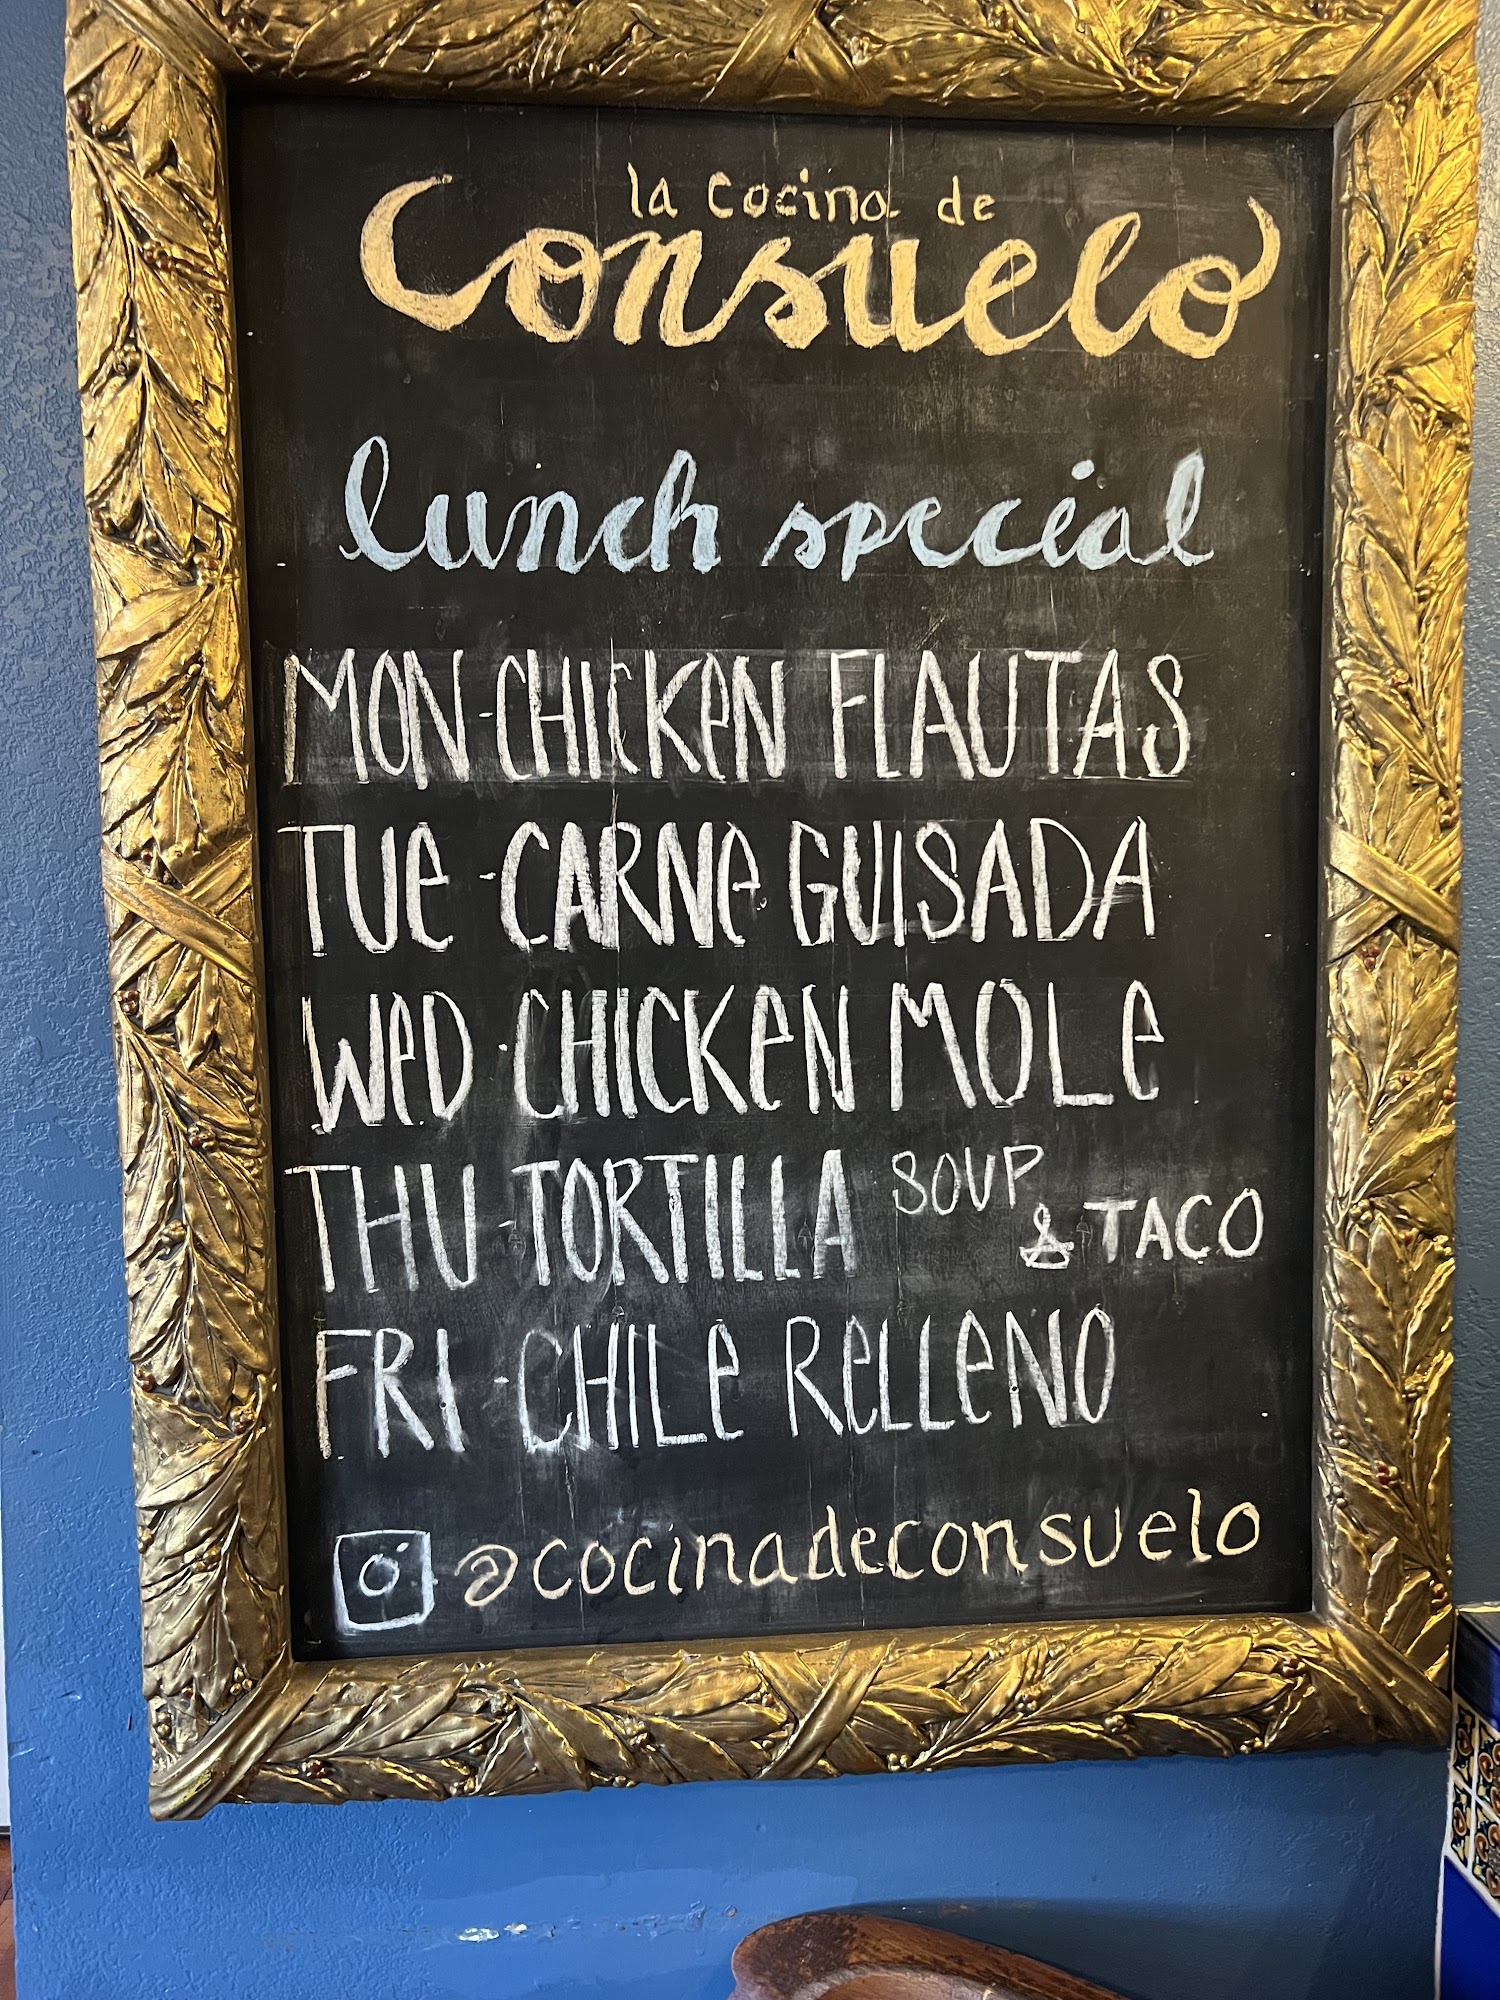 la cocina de
Consuelo
lunch special
MON-CHICKeN FLAUTAS
TUe-CARNe GUISADA
WeD-CHICKeN MOLe
THU-TORTILLA SOUP & TACO
FRI-CHILe ReLLeNO
@cocinadeconsuelo